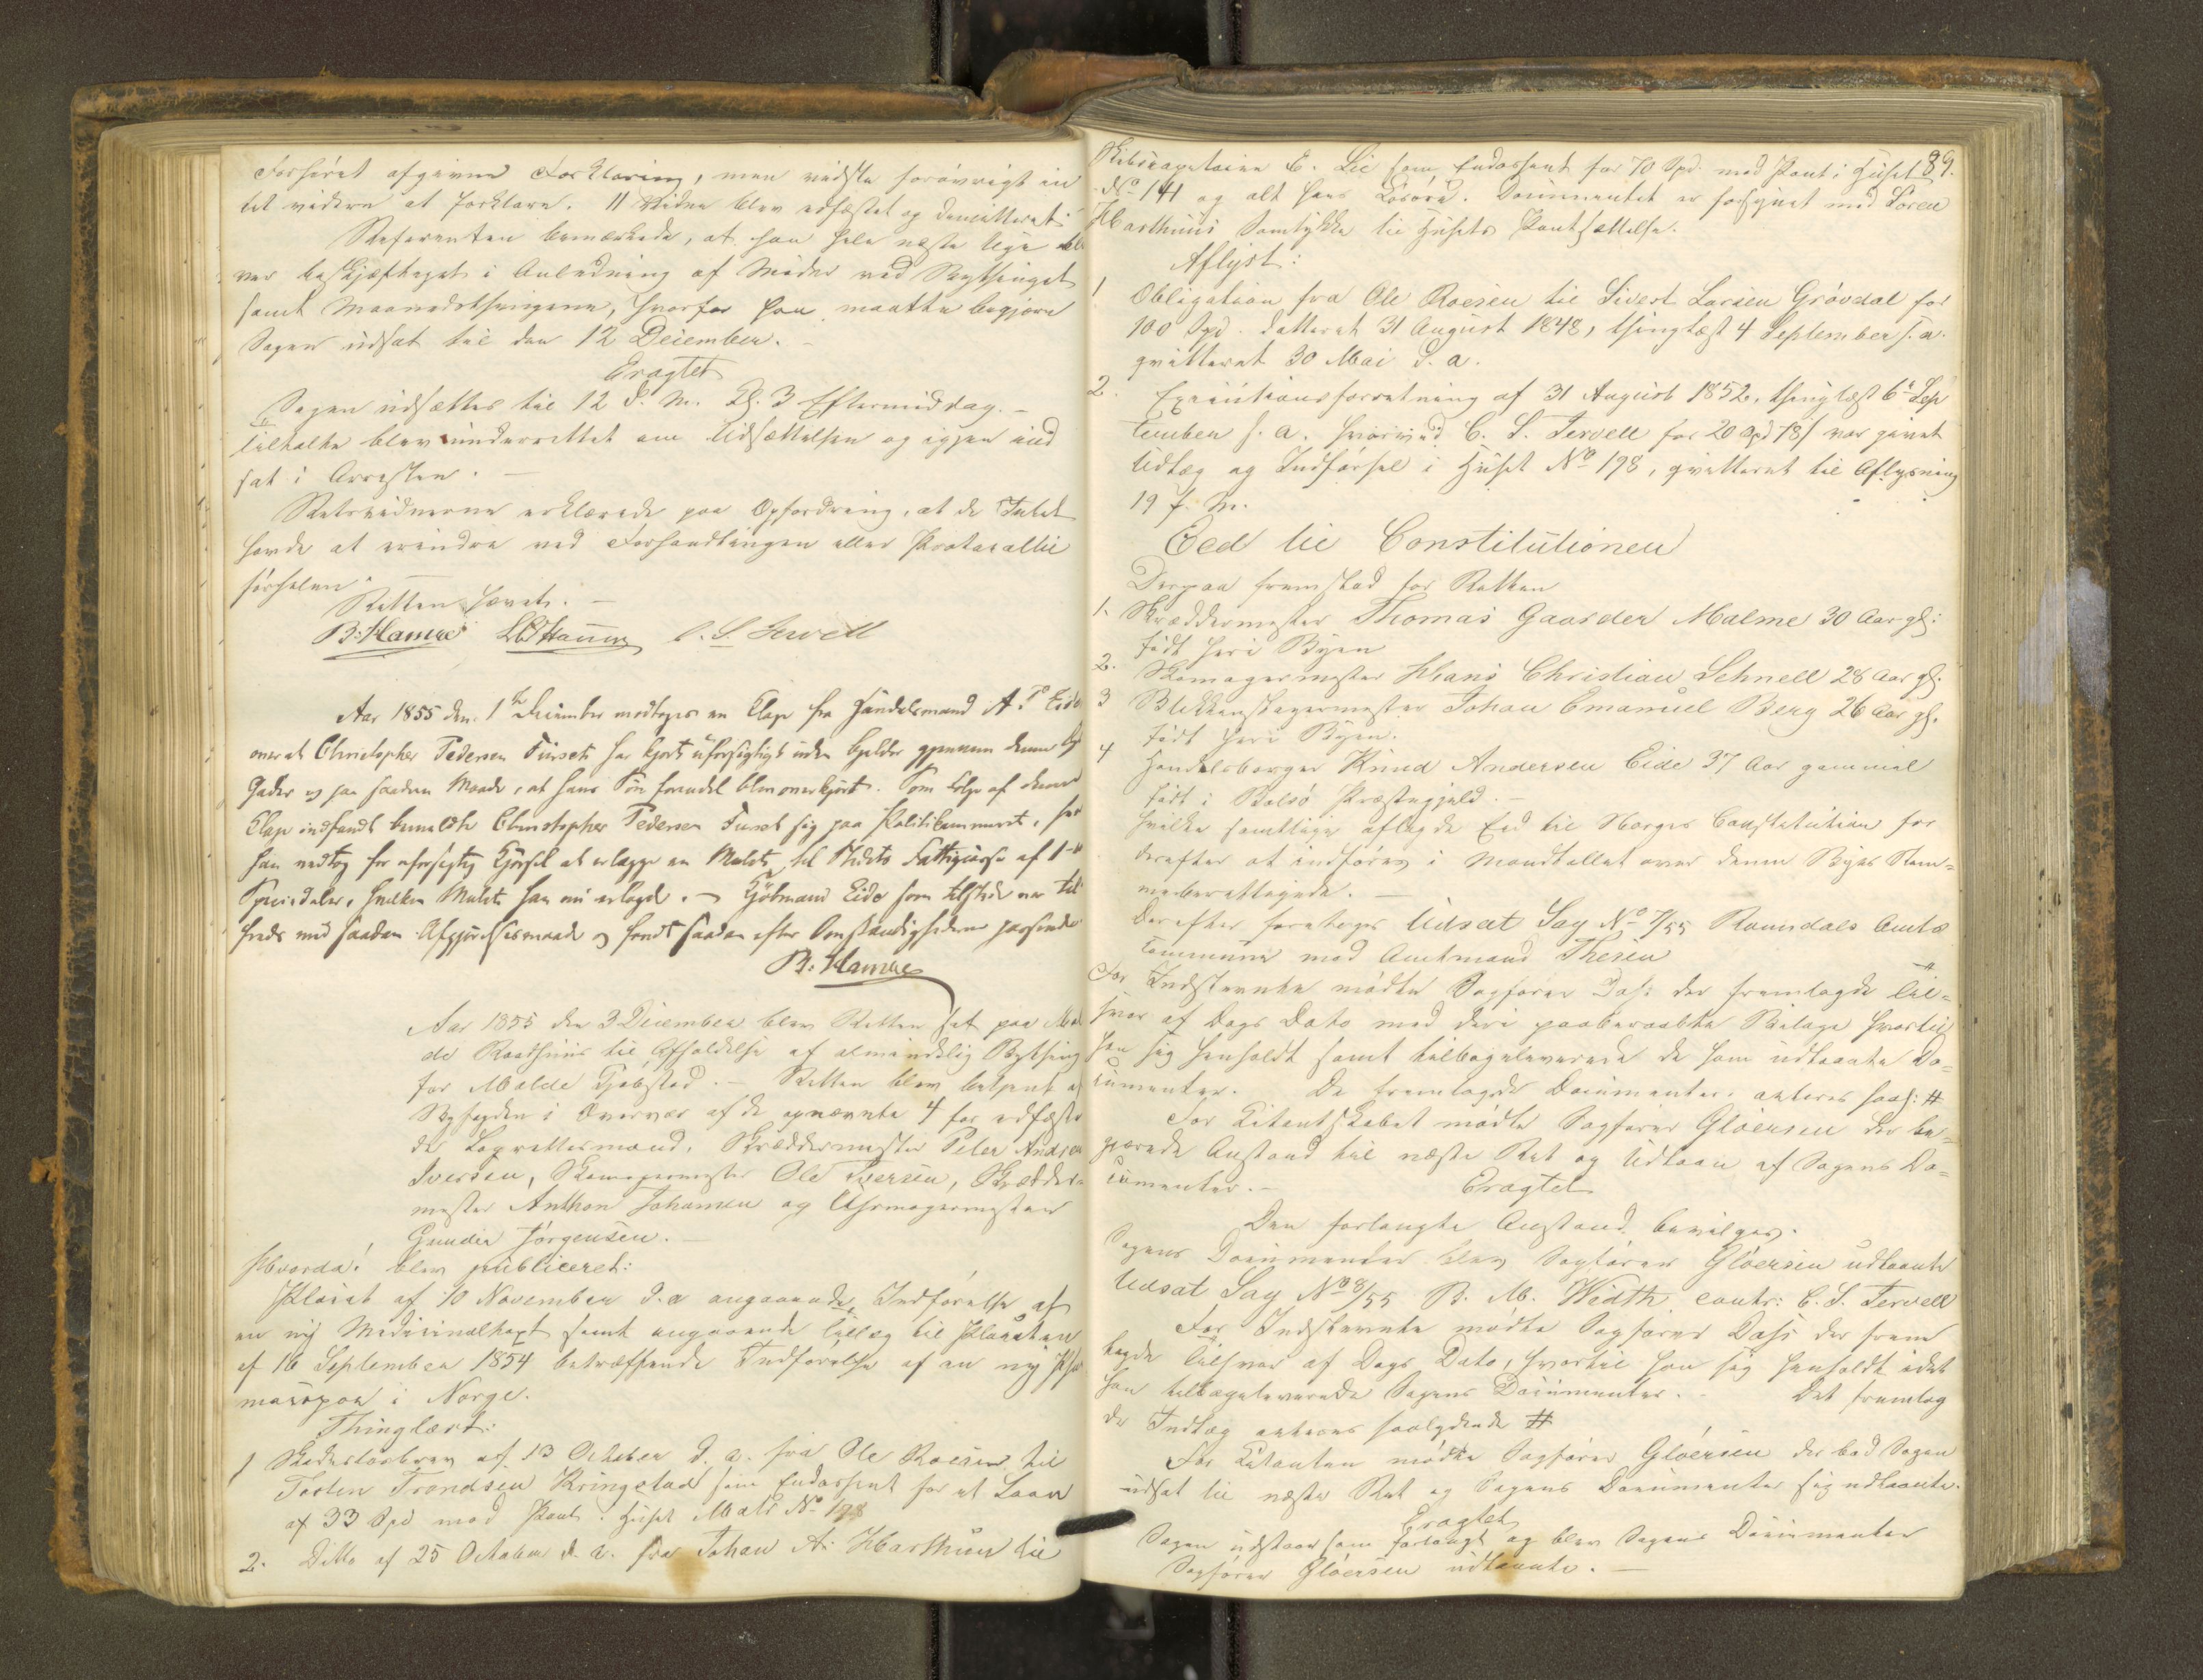 Forhöret afgivne Forklaring, men vidste forövrigt in
tet videre at forklare. 11 Vidne blev edfæstet og demitteret.
Referenten bemærkede, at han hele næste Uge
var beskjæftiget i Anledning af Møder ved Bythinget
samt Maanedsthingene, hvorfor han maatte begjære
Sagen udsat til den 12 December.
Eragtet
Sagen udsættes til 12 d. M. Kl. 3 Eftermiddag. –
Tiltalte blev underrettet om Udsættelsen og igjen ind
sat i Arresten. –
Retsvidnerne erklærede paa Opfordring, at de Intet
havde at erindre ved Forhandlingen eller Protocollti
förselen. –
Retten hævet. –
B. Hamre C. S. Tervell
Aar 1855 den 1 December modtoges en Klage fra Handelsmand A. Eide
over at Christopher Pedersen Furset har kjørt uforsigtigt uden Bjelder gjennem denne By
Gader og paa saadan Maade, at hans Sön forendel blev overkjört. Som Følge af denne
Klage indfandt bemeldte Christopher Pedersen Furset sig paa Politikammeret, hvor
han vedtog for uforsigtig Kjörsel at erlægge en Mulct til Stedets Fattigcasse af 1
Speciedaler, hvilken Mulct han nu erlagde. – Kjöbmand Eide som tilstede var til
freds med saadan Afgjörelsesmaade og fandt saadan efter Omstændighederne passende
B. Hamre
Aar 1855 den 3 December blev Retten sat paa Mol
de Raadhuus til Afholdelse af almindelig Bything
for Molde Kjöbstad. – Retten blev betjent af
Byfogden i Overvær af de opnævnte 4 for edfæste
de Lagrettesmænd, Skræddermester Peter Andrea
Iversen, Skomagermester Ole Iversen, Skrædder
mester Anthon Johansen og Uhrmagermester
Gunder Jörgensen. –
Hvorda! blev publiceret:
Placat af 10 November d. a. angaaende Indförelse af
en ny Medicinaltaxt samt angaaende Tillæg til Placaten
af 16 September 1854 betræffende Indförelse af en ny Phar
macopoe i Norge.
Thinglæst:
1 Skadeslösbrev af 13 October d. a. fra Ole Roesen til
Tosten Trondsen Kringstad som Endossent for et Laan
af 33 Spd mod Pant i Huset Matr No 198
2. Ditto af 25 October d. a. fra Johan A. Harthun til
89.
Skibscapitain E. Lie som Endossent for 70 Spd. med Pant i Huset
No 141 og alt hans Lösöre. Documentet er forsynet med Sören
Harthuns Samtykke til Husets Pantsættelse.
Aflyst:
1 Obligation fra Ole Roesen til Sivert Larsen Grövdal for
100 Spd. datteret 31 August 1848, thinglæst 4 September s. a.
qvitteret 30 Mai d. a.
2. Executionsforretning af 31 August 1852, thinglæst 6 Sep
tember s. a. hvorved C. S. Tervell for 20 Spd 78 s var givet
Udlæg og Indförsel i Huset No 198, qvitteret til Aflysning
19 f. M.
Eed til Constitutionen
Derpaa fremstod for Retten
1. Skræddermester Thomas Gaarder Malme 30 Aar gl.
födt heri Byen
2. Skomagermester Hans Christian Schnell 28 Aar gl.
3 Blikkenslagermester Johan Emanuel Berg 26 Aar gl.
födt heri Byen.
4 Handelsborger Knud Andersen Eide 37 Aar gammel
födt i Bolsö Præstegjeld. –
hvilke samtlige aflagde Eed til Norges Constitution for
derefter at indföres i Mandtallet over denne Byes Stem-
meberettigede. –
Derefter foretoges Udsat Sag No 7/55 Romsdals Amts
Commune mod Amtmand Thesen
For Indstevnte mödte Sagförer Dahl der fremlagde Til-
svar af Dags Dato med deri paaberaabte Bilage hvortil
han sig henholdt samt tilbageleverede de ham udlaante Do-
cumenter. De fremlagde Documenter acteres saal: #
For Citantskabet mödte Sagförer Glöersen der be-
gjærede Anstand til næste Ret og Udlaan af Sagens Do-
cumenter. –
Eragtet
Den forlangte Anstand bevilges.
Sagens Documenter blev Sagförer Glöersen udlaante
Udsat Sag No 8/55 B. M. Width contr: C. S. Tervell
For Indstevnte mödte Sagförer Dahl der frem
lagde Tilsvar af Dags Dato, hvortil han sig henholdt idet
han tilbageleverede Sagens Documenter. – Det fremlag
de Indlæg acteres saalydende #
For Citanten mödte Sagförer Glöersen der bad Sagen
udsat til næste Ret og Sagens Documenter sig udlaante.
Eragtet
Sagen udstaar som forlangt og blev Sagens Documenter
Sagförer Glöersen udlaante. –